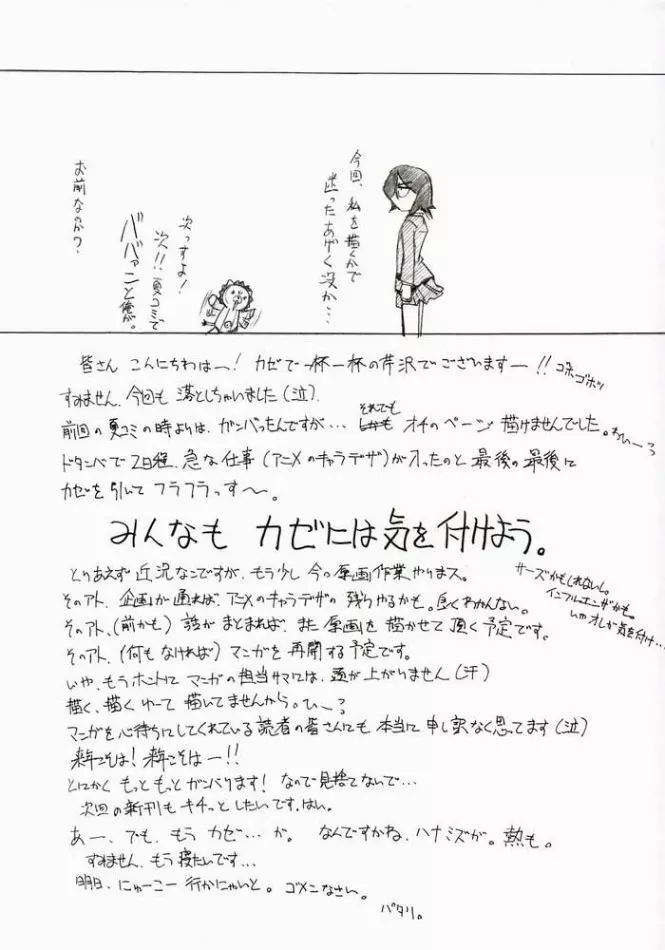 今回、私を描くかで
迷ったあげく没か…
次っすよ!
次!!夏コミで
ババァ〜ンと俺が。
お前なのか?
皆さん こんにちわはー! カゼで一杯一杯の芹沢でございますー!! ゴホゴホッ
すみません、今回も 落としちゃいました(泣)
前回の夏コミの時よりは、ガンバったんですが… それでも オチのページ 描けませんでした。わぃー?
ドタンバで 2日程、急な仕事(アニメのキャラデザ)が入ったのと 最後の最後に
カゼを引いて フラフラっす〜。
みんなも カゼには気を付けよう。
サーズかもしれないし。
インフルエンザかも。
いや、オレが気を付け…
とりあえず 近況なこですが、もう少し 今の原画作業やりまス。
そのアト、企画が通れば、アニメのキャラデザの 残りやるかも。良くわかんない。
そのアト、(前かも) 話が まとまれば、また 原画を 描かせて 頂く予定です。
そのアト、(何もなければ) マンガを 再開する予定です。
いや、もうホントに マンガの担当サマには、頭が上がりません(汗)
描く、描くゆーて 描いてませんから。ひぃー?
マンガを心待ちにしてくれている読者の皆さんにも 本当に申し訳なく思ってます(泣)
来年こそは! 来年こそはー!!
とにかく もっともっとガンバります! なので見捨てないで…
次回の新刊も キチッとしたいです、はい。
あー、でも、もう カゼ…が。 なんですかね、ハナミズが。熱も。
すみません、もう寝たいです…
明日、にゅーこー 行かにゃいと。ゴメンなさい。
パタリ。